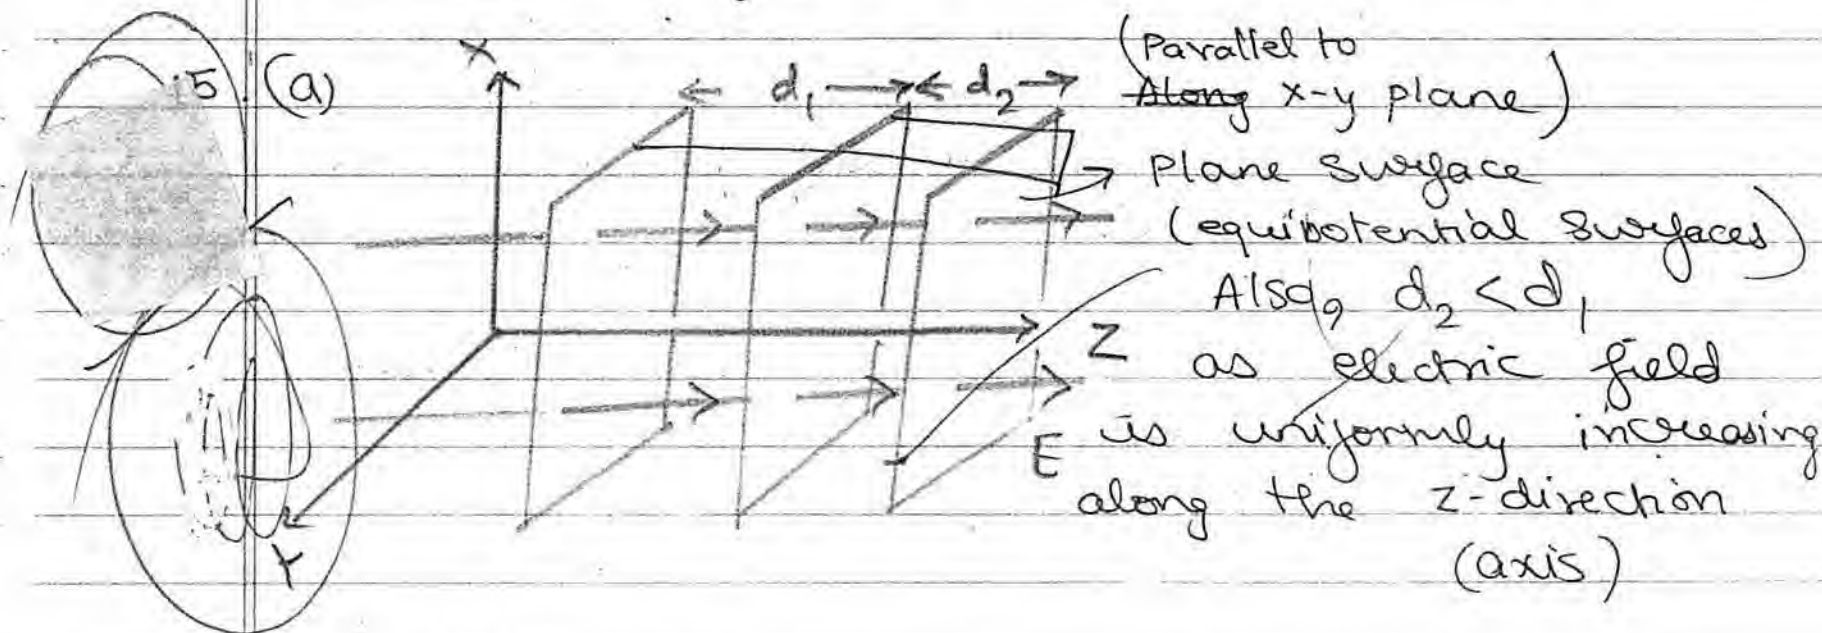 (Parallel to
15. (a) X d₁ d₂ ~~Along~~ x-y plane)
Plane surface
(equipotential surfaces)
Also, d₂ < d₁
Z as electric field
E is uniformly increasing
along the z-direction
Y (axis)